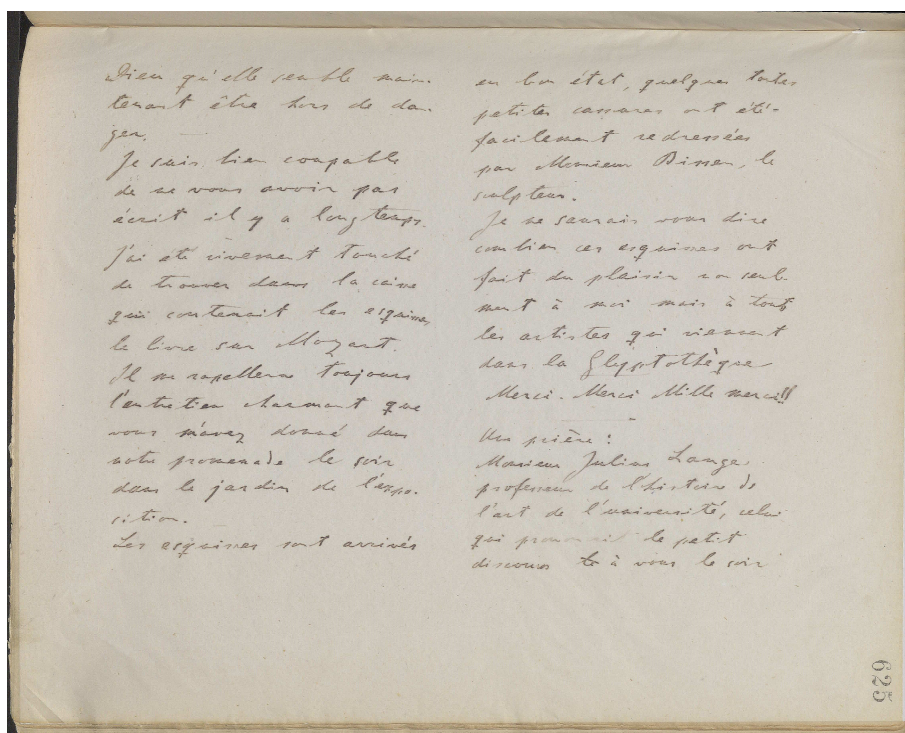 Dieu qu'elle semble main-
tenant être hors de dan-
ger. —
Je suis bien coupable
de ne vous avoir pas
écrit il y a longtemps.
J'ai été vivement touché
de trouver dans la caisse
qui contenait les esquisses
le livre sur Mozart.
Il me rapellera toujours
l'entretien charmant que
vous m'avez donné dans
notre promenade le soir
dans le jardin de l'expo-
sition.
Les esquisses sont arrivés
en bon état, quelques toutes
petites cassures ont été
facilement redressées
par Monsieur Bissen, le
sculpteur.
Je ne saurais vous dire
combien ces esquisses ont
fait du plaisir non seul-
ment à moi mais à touts
les artistes qui viennent
dans la Glyptothèque
Merci. Merci Mille merci!!
Un prière :
Monsieur Julius Lange,
professeur de l'histoire de
l'art de l'université, celui
qui prononcait le petit
discours à vous le soir
625